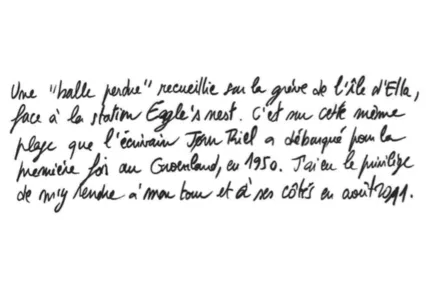 Une "balle perdue" recueillie sur la grève de l'île d'Ella,
face à la station Eggle's nest. C'est sur cette même
plage que l'écrivain Jørn Riel a débarqué pour la
première fois au Groenland, en 1950. J'ai eu le privilège
de m'y rendre à mon tour et à ses côtés en août 2011.